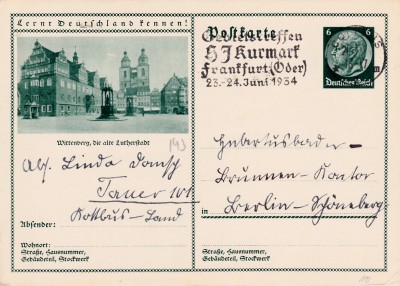 Lernt Deutschland kennen!
Wittenberg, die alte Lutherstadt
143
Abs. Linda Domsch
Tauer 101
Kottbus-Land
Absender:
Wohnort:
Straße, Hausnummer,
Gebäudeteil, Stockwerk
Postkarte
Gebietstreffen
HJ Kurmark
Frankfurt (Oder)
23.-24. Juni 1934
6 6
Deutsches Reich
Hubertusbader-
Brunnen-Kontor
in Berlin-Schöneberg
Straße, Hausnummer,
Gebäudeteil, Stockwerk